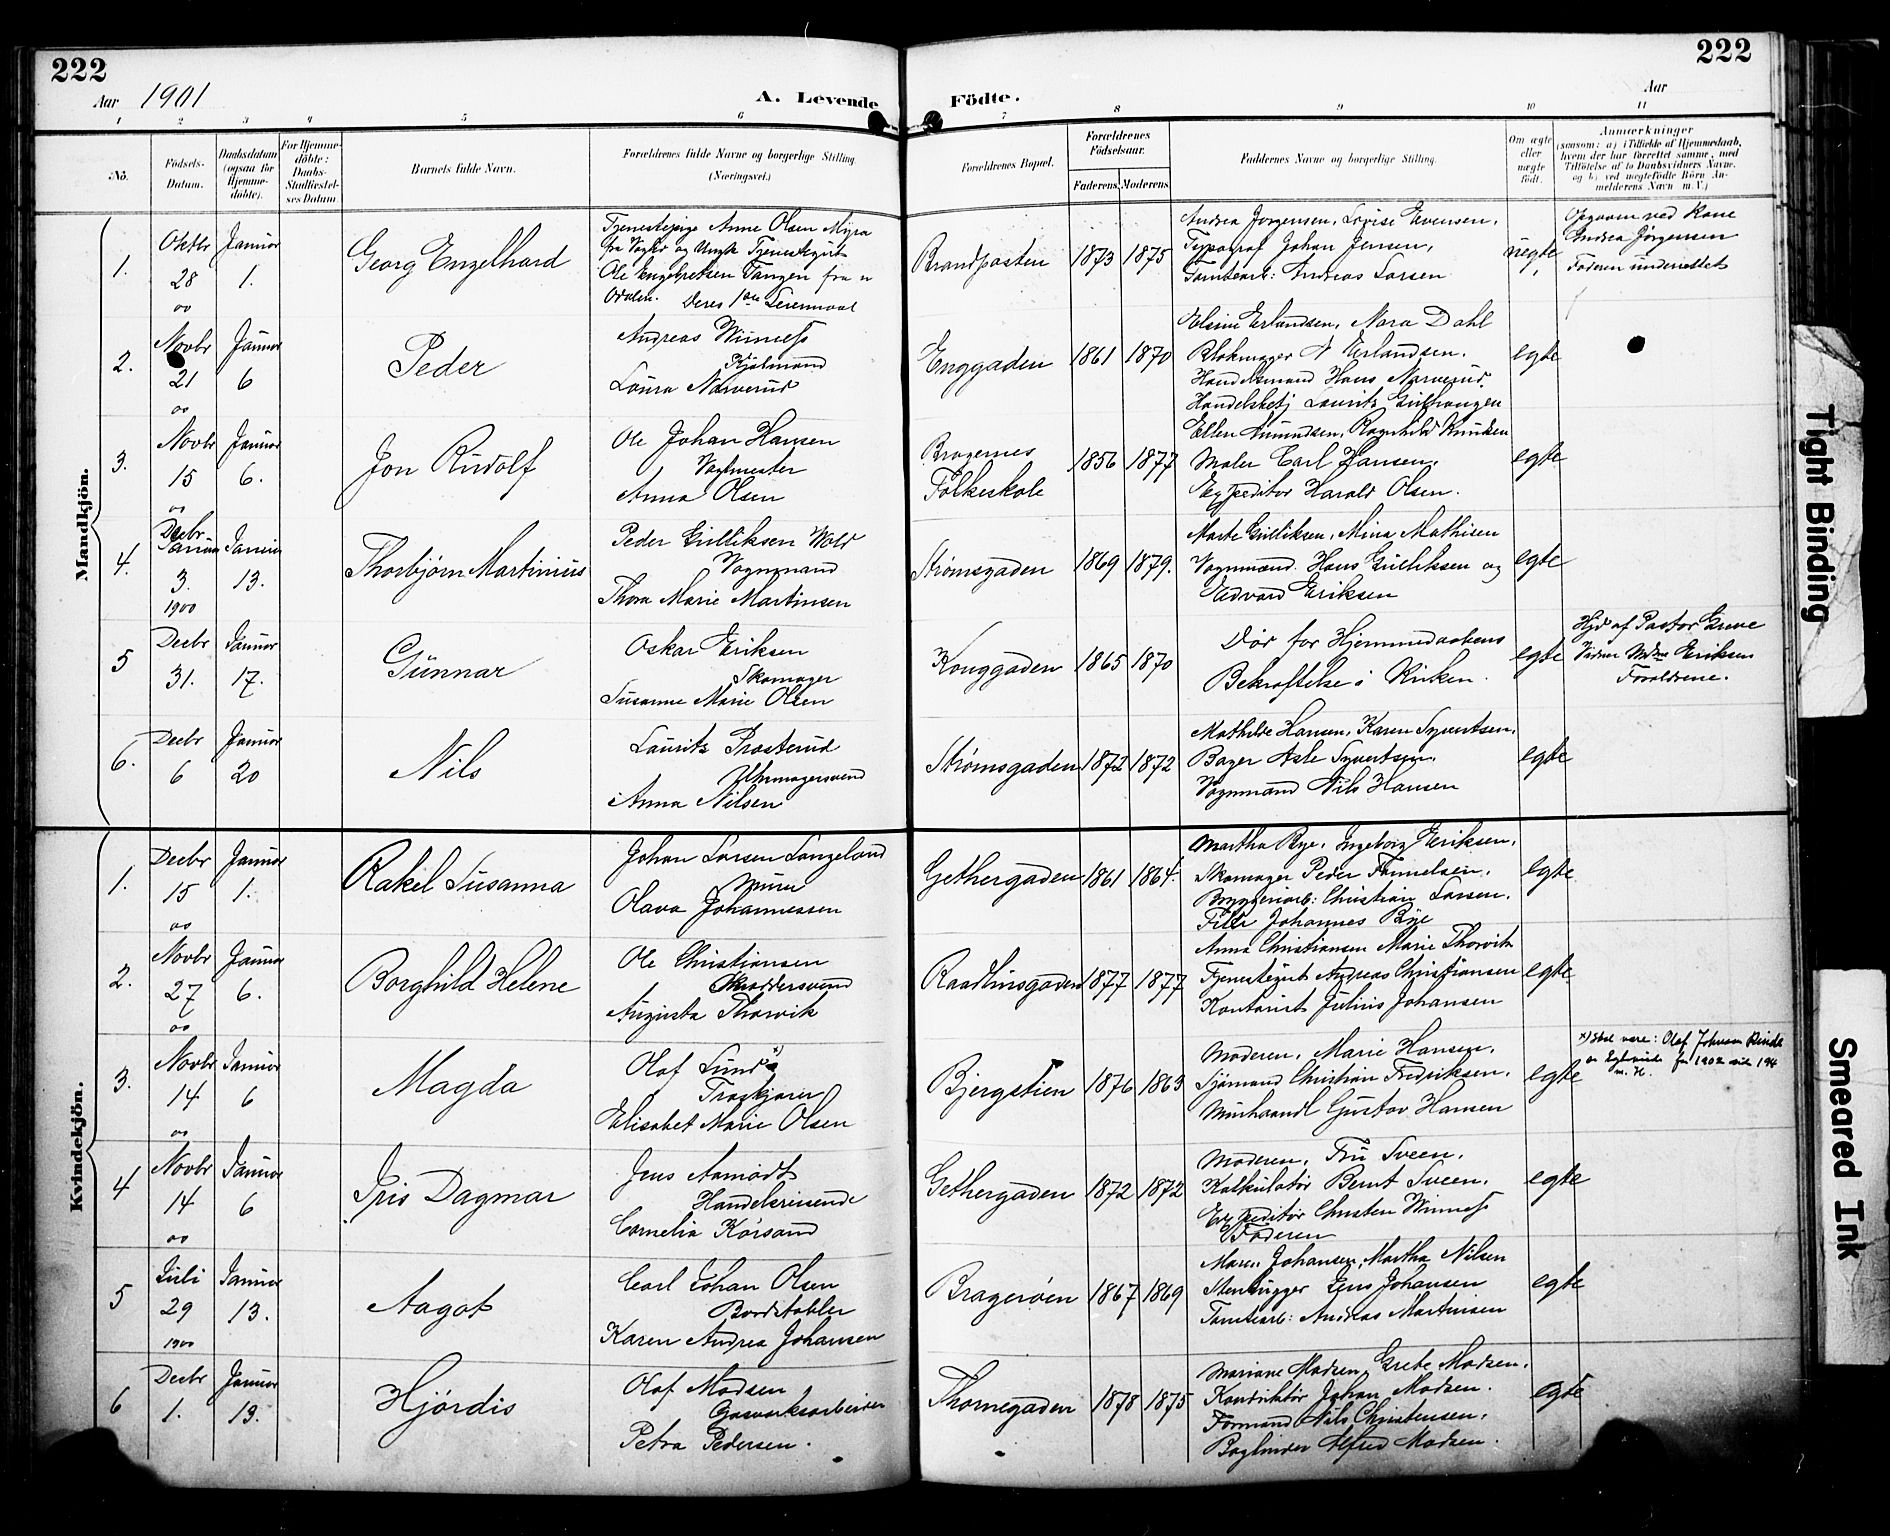 222
222
Aar 1901
A. Levende
Födte.
Aar
1 2 3 4 5 6 7 8 9 10 11
No.
Födsels-Datum.
Daabsdatum (ogsaa for Hjemmedöbte).
For Hjemmedöbte: Daabs-Stadfæstelses Datum
Barnets fulde Navn.
Forældrenes fulde Navne og borgerlige Stilling. (Næringsvei.)
Forældrenes Bopæl.
Forældrenes Födselsaar.
Faderens. Moderens.
Faddernes Navne og borgerlige Stilling.
Om ægte eller uægte födt.
Anmærkninger
(saasom: a) i Tilfælde af Hjemmedaab, hvem der har forrettet samme, med Tilföielse af to Daabsvidners Navne, og b) ved uegtefödte Börn Anmelderens Navn m. V.)
Mandkjön.
1.
Oktbr
28
00
Januar
1.
Georg Engelhard
Tjenestepige Anne Olsen Myra
fra Vaaler og Ungk Tjenestegut
Ole Engebretsen Tangen fra n
Odalen. Deres 1ste Leiermaal
Brandposten
1873
1875
Andrea Jørgensen, Lovise Evensen,
Typograf Johan Jensen,
Tomtearb: Andreas Larsen
uegte
Opgaven ved Kone
Andrea Jørgensen
Faderen underrettet
2.
Novbr
21
00
Januar
6
Peder
Andreas Winness
Kjølmand
Laura Narverud
Enggaden
1861
1870
Elsine Erlandsen, Nora Dahl
Blokmager A Erlandsen.
Handelsmand Hans Narverud.
Handelsbetj Laurits
egte
3.
Novbr
15
00
Januar
6.
Jon Rudolf
Ole Johan Hansen
Vagtmester
Anna Olsen
Bragernes
Folkeskole
1856
1877
Ellen Amundsen, Ragnhild Knudsen
Maler Carl Hansen.
Expeditor Harald Olsen.
egte
4.
Decbr
Januar
3.
1900
Januar
13.
Thorbjørn Martinius
Peder Gulliksen Wold
Vognmand
Thora Marie Martinsen
Strømsgaden
1869
1879.
Marte Gulliksen, Mina Mathisen
Vognmand. Hans Gulliksen og
Edvard Eriksen
egte
5
Decbr
31.
Januar
17.
Gunnar
Oskar Eriksen
Skomager
Susanne Marie Olsen
Konggaden
1865
1870
Død før Hjemmedaabens
Bekræftelse i Kirken.
egte
Hjd af Pastor Greve
Vidner Mdme Eriksen
Forældrene.
6.
Decbr
6
Januar
20
Nils
Laurits Prosterud
Uhrmagersvend
Anna Nilsen
Strømsgaden
1872
1872
Mathilde Hansen, Karen Syvertsen,
Bager Asle Syvertsen.
Vognmand Nils Hansen
egte
Kvindekjön.
1.
Decbr
15
00
Januar
1.
Rakel Susanna
Johan Larsen Langeland
Murer
Olava Johannessen
Gethergaden
1861
1864.
Martha Rye, Ingeborg Eriksen,
Skomager Peder
Bryggeriarb: Christian Larsen.
Johannes Rye
egte
2.
Novbr
27
00
Januar
6.
Borghild Helene
Ole Christiansen
Skræddersvend
Augusta Thorvik
Raadhusgaden
1877
1877
Anna Christiansen Marie Thorvik
Tjenestegut Andreas Christiansen
Kontorist Julius Johansen
egte
3.
Novbr
14
00
Januar
6
Magda
Olaf Lund x)
Elisabet Marie Olsen
Bjergstien
1876
1863
Moderen, Marie Hansen,
Sjømand Christian Fredriksen,
Gustav Hansen
egte
x) Skal være: Olaf Johnsen
4
Novbr
14
00
Januar
6
Iris Dagmar
Jens Aamodt
Handelsreisende
Cornelia Korsand
Gethergaden
1872
1872
Moderen, Fru Sveen,
Kalkulatør Bernt Sveen.
Expeditør Christen Winness
Faderen
egte
5
Juli
29
1900
Januar
13.
Aagot
Carl Johan Olsen
Bordstabler
Karen Andrea Johansen
Bragerøen
1867
1869
Maren Johansen, Martha Nilsen
Stenhugger Lars Johansen
Tomtearb: Andreas Martinsen
egte
6
Decbr
1.
Januar
13.
Hjørdis
Olaf Madsen
Gasværksarbeider
Petra Pedersen.
Thornegaden
1878
1875
Mariane Madsen, Grete Madsen.
Konduktør Johan Madsen.
Formand Nils Christensen,
Bogbinder Alfred Madsen.
egte
Tight Binding
Smeared Ink